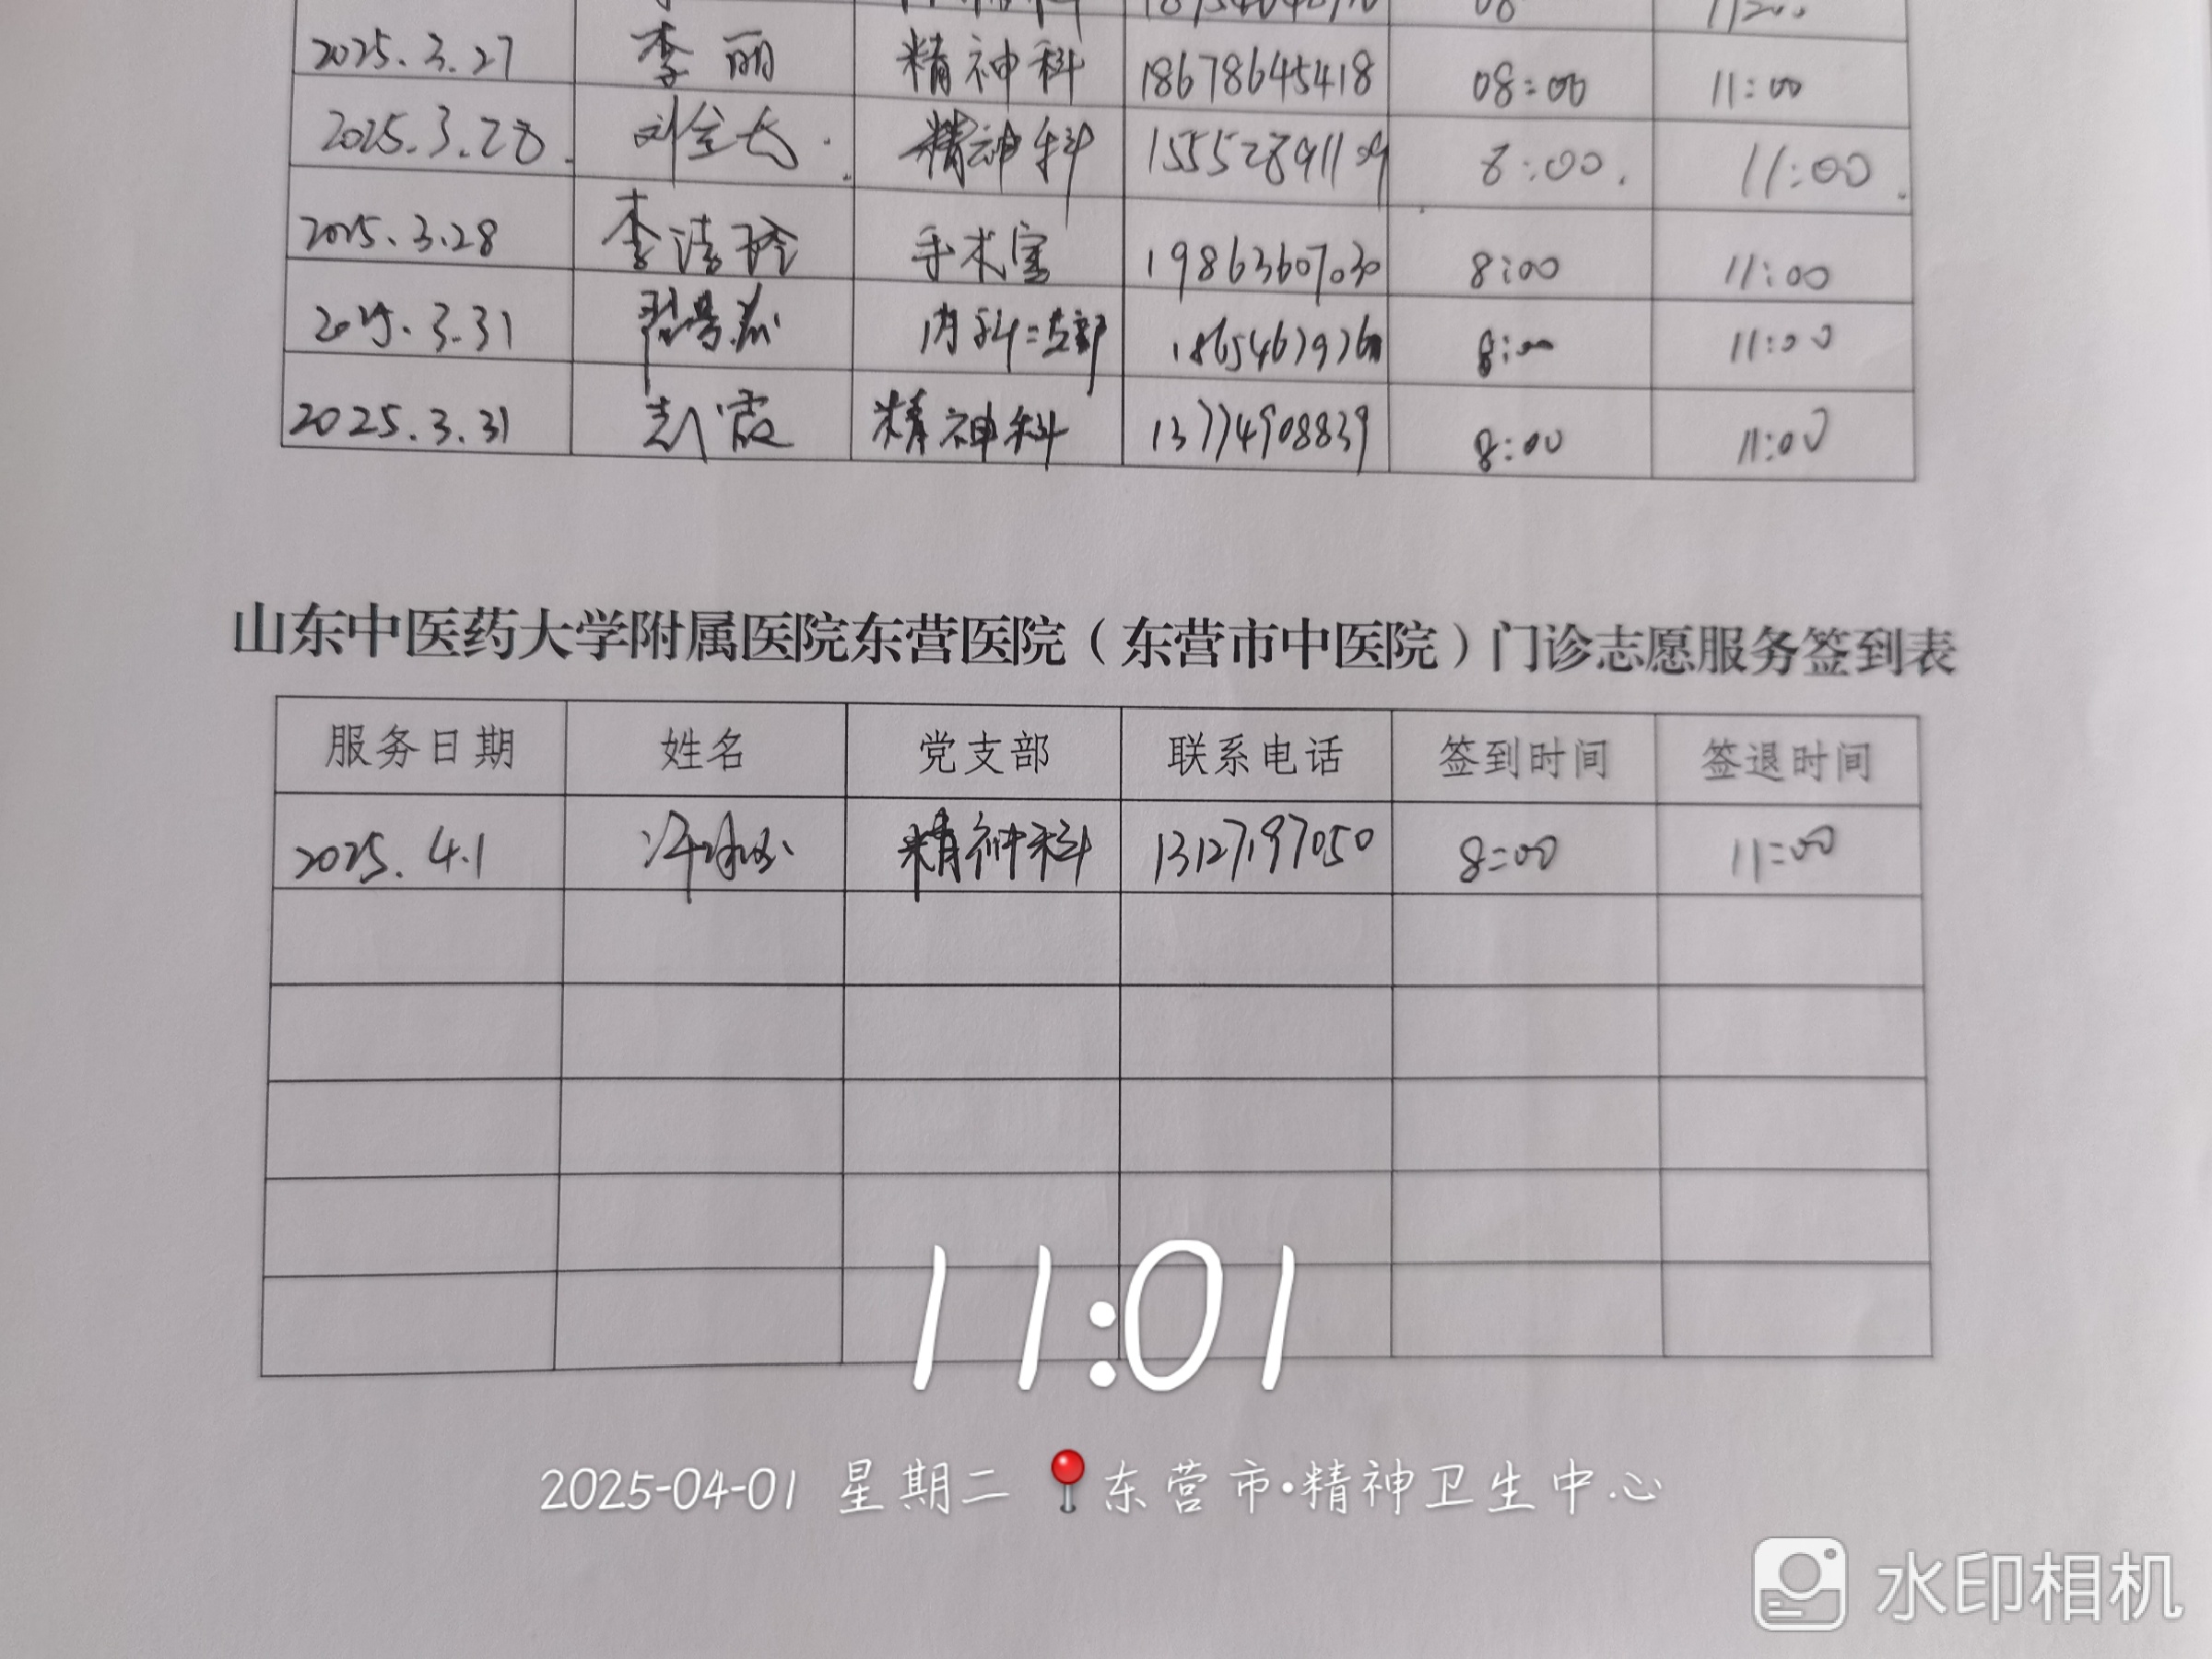 08 11:20.
2025.3.27 李丽 精神科 18678645418 08:00 11:00
2025.3.28. 刘金长. 精神科 15552891109 8:00. 11:00.
2025.3.28 李清玲 手术室 19863607030 8:00 11:00
2025.3.31 内科二支部 8:00 11:00
2025.3.31 彭霞 精神科 13774908839 8:00 11:00
山东中医药大学附属医院东营医院（东营市中医院）门诊志愿服务签到表
服务日期 姓名 党支部 联系电话 签到时间 签退时间
2025.4.1 精神科 13127197050 8:00 11:00
11:01
2025-04-01 星期二 东营市·精神卫生中心
水印相机